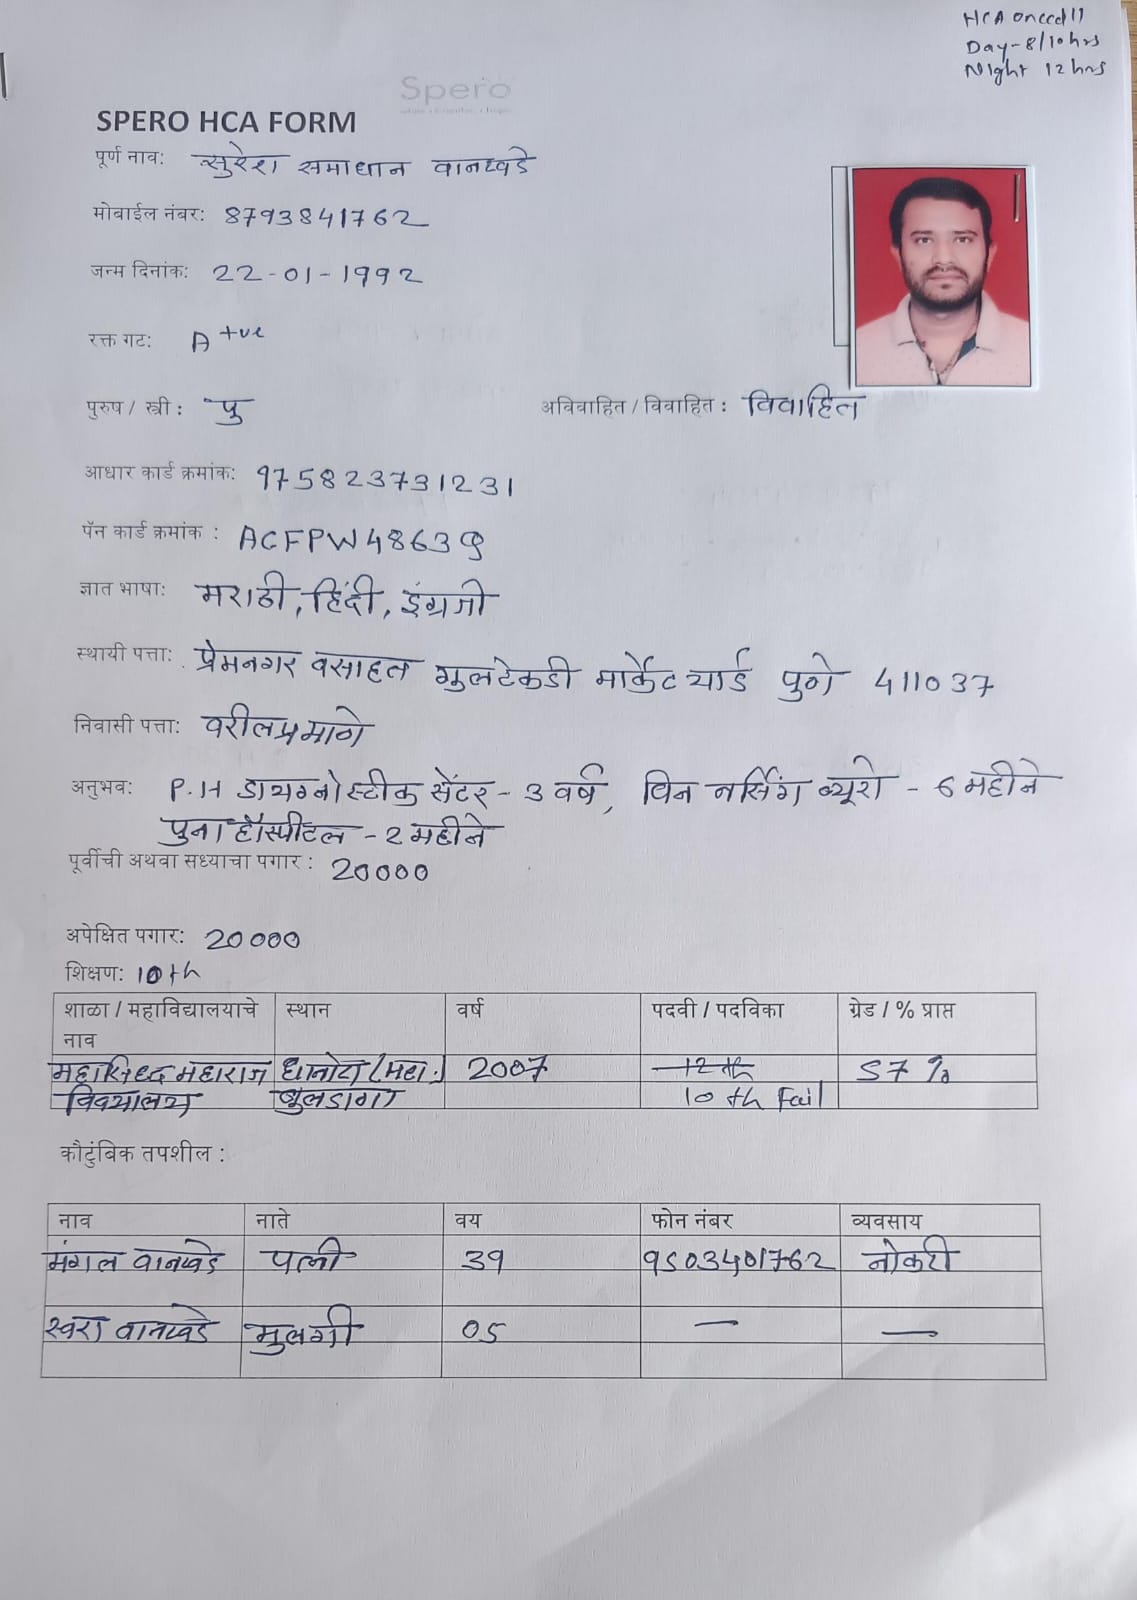 HCA oncall
Day - 8/10 hrs
Night 12 hrs
Spero
SPERO HCA FORM
पूर्ण नाव: सुरेश समाधान वानखडे
मोबाईल नंबर: 8793841762
जन्म दिनांक: 22-01-1992
रक्त गट: A +ve
पुरुष / स्त्री : पु अविवाहित / विवाहित : विवाहित
आधार कार्ड क्रमांक: 975823731231
पॅन कार्ड क्रमांक : ACFPW4863
ज्ञात भाषा: मराठी, हिंदी, इंग्रजी
स्थायी पत्ता: प्रेमनगर वसाहत गुलटेकडी मार्केटयार्ड पुणे 411037
निवासी पत्ता: वरीलप्रमाणे
अनुभव: P.H डायग्नोस्टीक सेंटर - 3 वर्ष, विन नर्सिंग ब्यूरो - 6 महीने
पुना हॉस्पीटल - 2 महीने
पूर्वीची अथवा सध्याचा पगार : 20000
अपेक्षित पगार: 20000
शिक्षण: 10th
शाळा / महाविद्यालयाचे स्थान वर्ष पदवी / पदविका ग्रेड / % प्राप्त
नाव
महासिध्द महाराज धानोरा (महा.) 2007 12th 57 %
विद्यालय बुलडाणा 10 th Fail
कौटुंबिक तपशील :
नाव नाते वय फोन नंबर व्यवसाय
मंगल वानखडे पत्नी 39 9503401762 नोकरी
स्वरा वानखडे मुलगी 05 — —